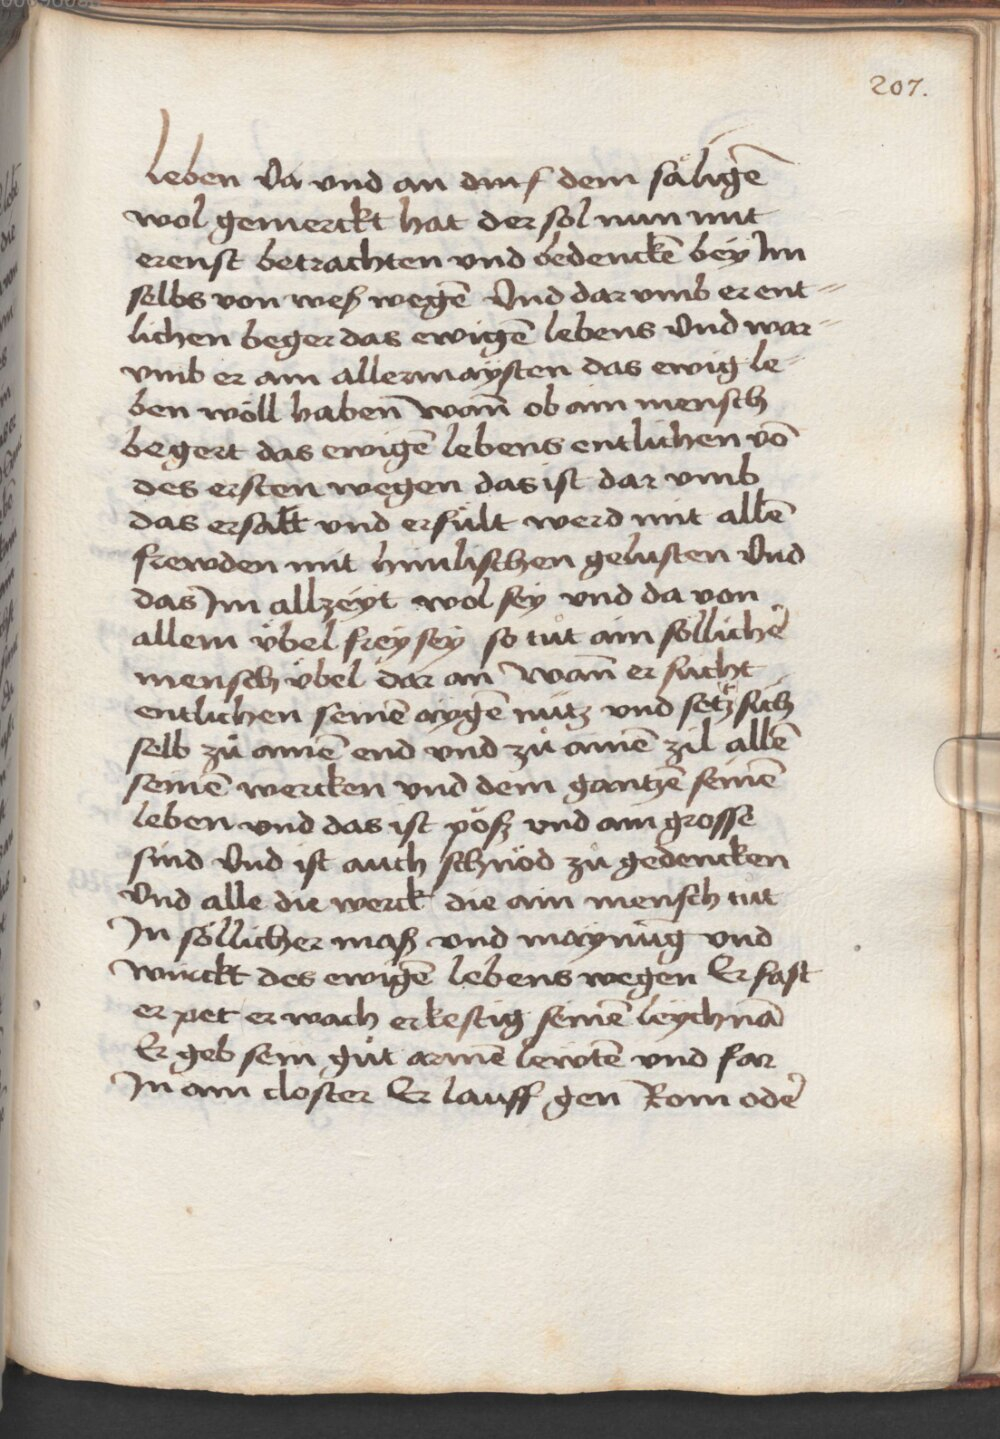 207.
leben Va vnd an dinſ dem säligē
wol gemerckt hat der sol nun mit
erenst betrachten vnd bedenckē bey Im
selbs von weß wegē Vnd dar vmb er ent=
lichen beger das ewigē lebens Vnd war=
vmb er am allermaÿsten das ewig le=
ben wöll haben wañ ob ain mensch
begert das ewigē lebens entlichen vō
des ersten wegen das ist dar vmb
das ersatt vnd erfült werd mit allē
frewden mit himlischen gelusten Vnd
das Im allzeÿt wol seÿ vnd da von
allem übel freÿ seÿ so tůt ain söllichē
mensch übel dar an wañ er sücht
entlichen seinē aÿgē nütz vnd setzt sich
selb zů ainē end vnd zů ainē zil allē
seinē wercken vnd dem gantzē seinē
leben vnd das ist pöß vnd ain grosse
sind Vnd ist auch schnöd zů gedencken
Vnd alle die werck die ain mensch tůt
In söllicher maß vnd maÿnūg vnd
würckt des ewigē lebens wegen Er fast
er pet er wach er kestig seinē leÿchnā
Er geb sein gůt armē lewtē vnd far
In ain closter Er lauff gen Rom odē